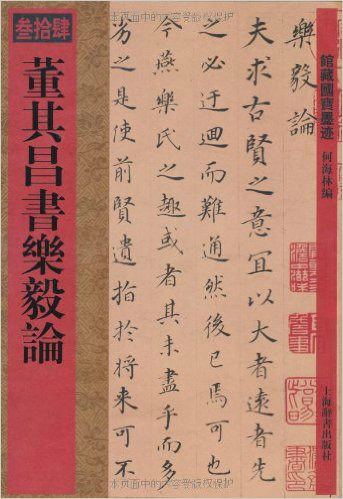 叁拾肆
董其昌書樂毅論
館藏國寶墨迹
何海林編
上海辭書出版社
樂毅論
夫求古賢之意宜以大者遠者先
之必迂迴而難通然後已焉可也
今燕樂氏之趣或者其未盡乎而多
劣之是使前賢遺指於将来可不
本页面中的内容受版权保护
本页面中的内容受版权保护